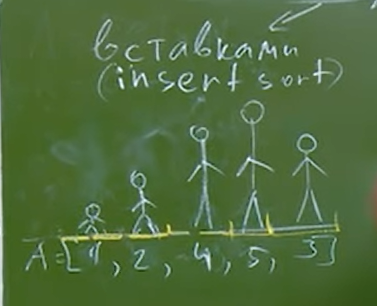 вставками
(insert sort)
A=[1, 2, 4, 5, 3]